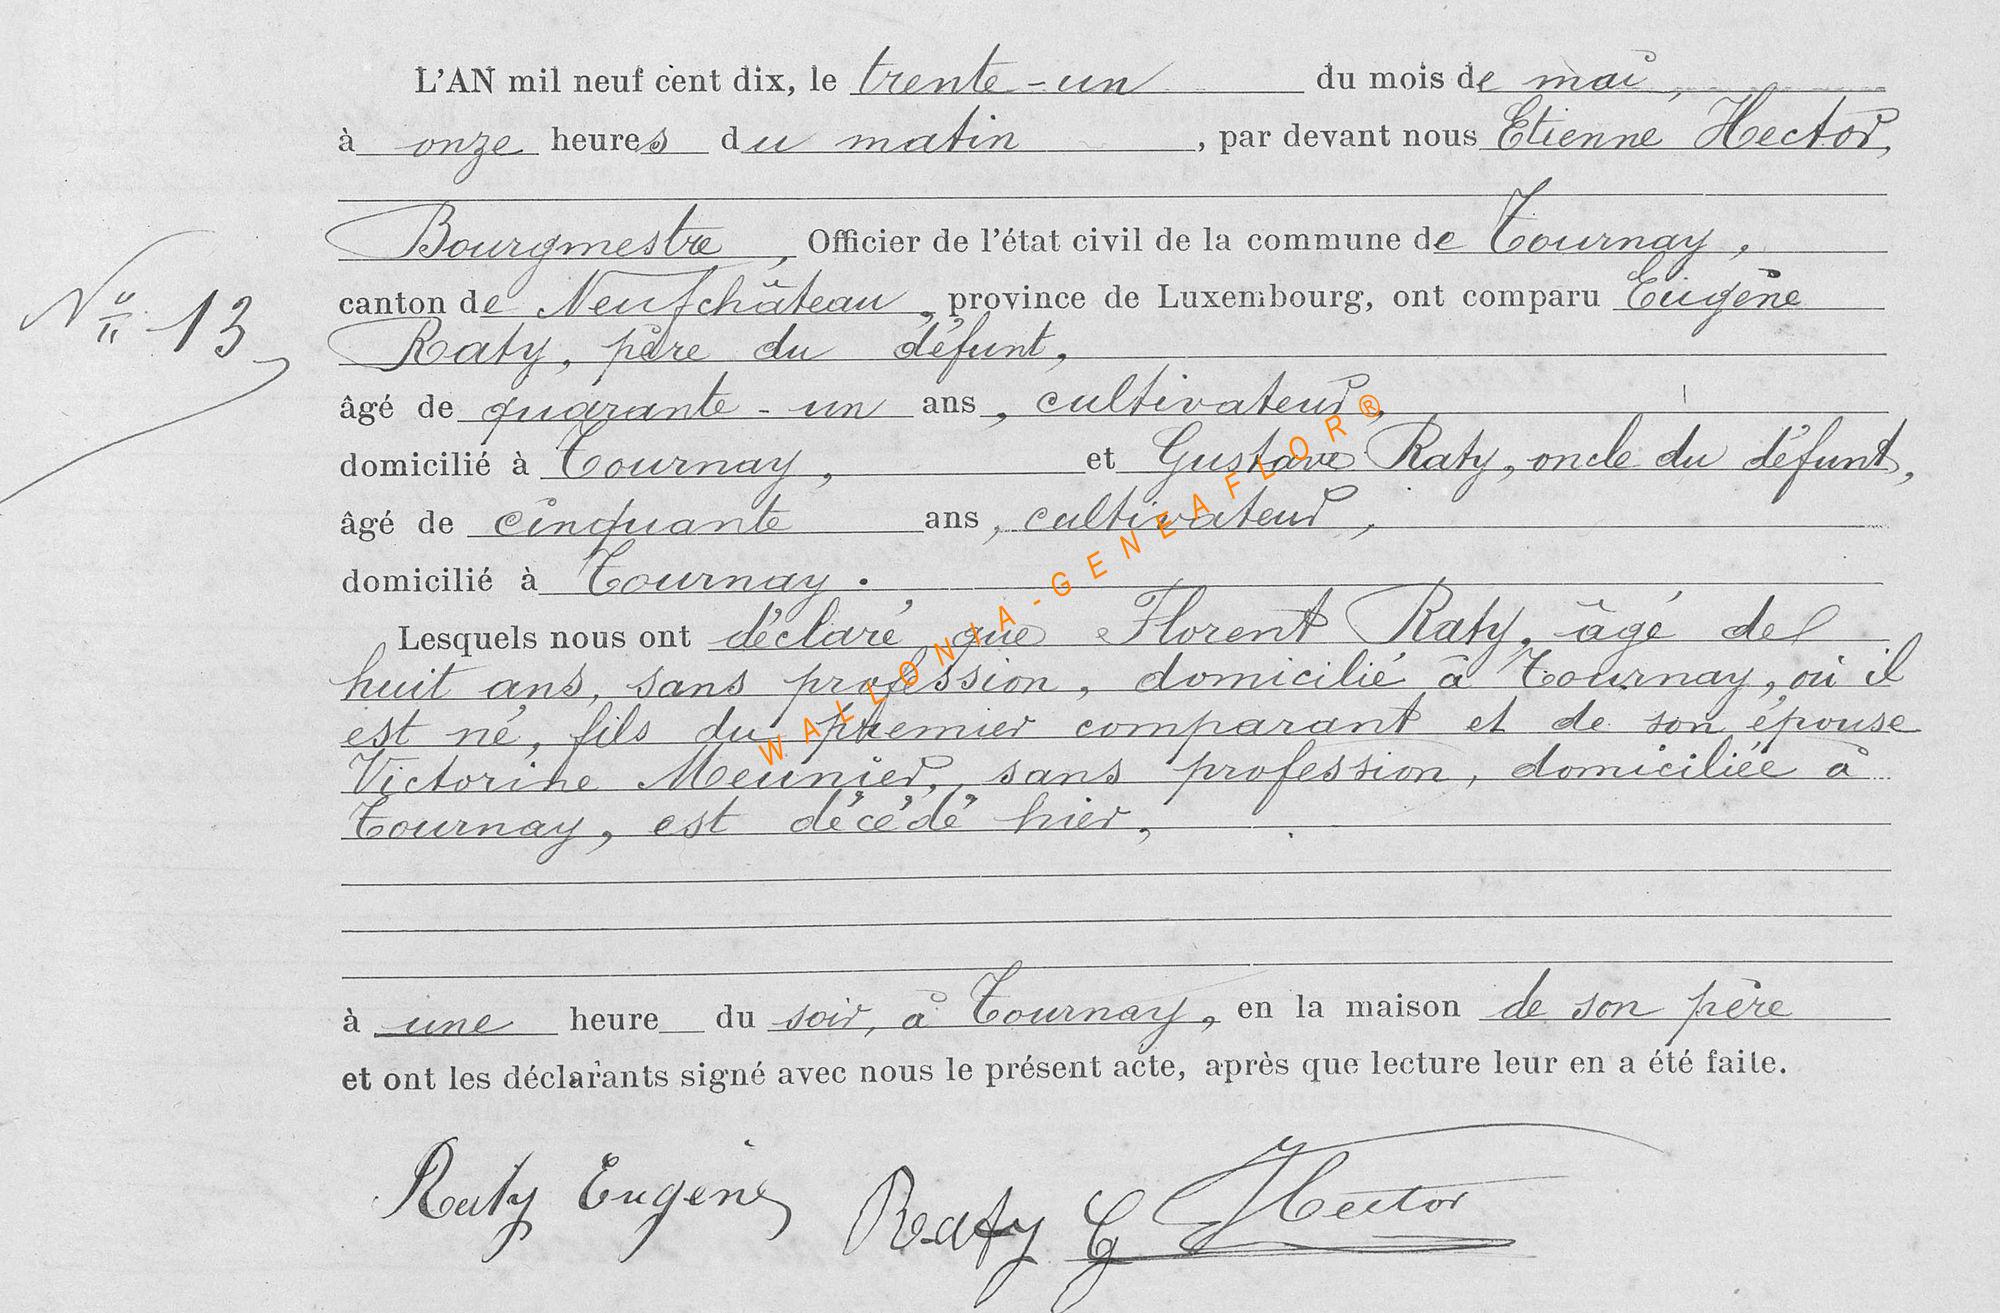 L'AN mil neuf cent dix, le trente-un du mois de mai,
à onze heures du matin, par devant nous Etienne Hector,
Bourgmestre, Officier de l'état civil de la commune de Tournay,
N° 13
canton de Neufchâteau, province de Luxembourg, ont comparu Eugène
Raty, père du défunt,
âgé de quarante-un ans, cultivateur,
domicilié à Tournay, et Gustave Raty, oncle du défunt,
âgé de cinquante ans, cultivateur,
domicilié à Tournay.
Lesquels nous ont déclaré que Florent Raty, âgé de
huit ans, sans profession, domicilié à Tournay, où il
est né, fils du premier comparant et de son épouse
Victorine Meunier, sans profession, domiciliée à
Tournay, est décédé hier,
à une heure du soir, à Tournay, en la maison de son père
et ont les déclarants signé avec nous le présent acte, après que lecture leur en a été faite.
Raty Eugène Raty G Hector
WALLONIA-GENEAFLOR®